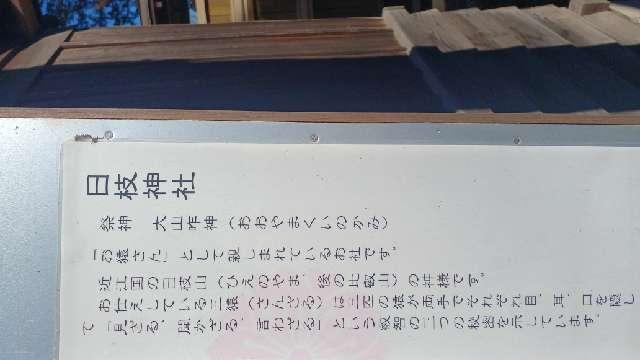 日枝神社
祭神　大山咋神（おおやまくいのかみ）
「お猿さん」として親しまれているお社です。
近江国の日枝山（ひえのやま、後の比叡山）の神様です。
お仕えしている三猿（さんざる）は三匹の猿が両手でそれぞれ目、耳、口を隠し
て「見ざる、聞かざる、言わざる」という叡智の三つの秘密を示しています。